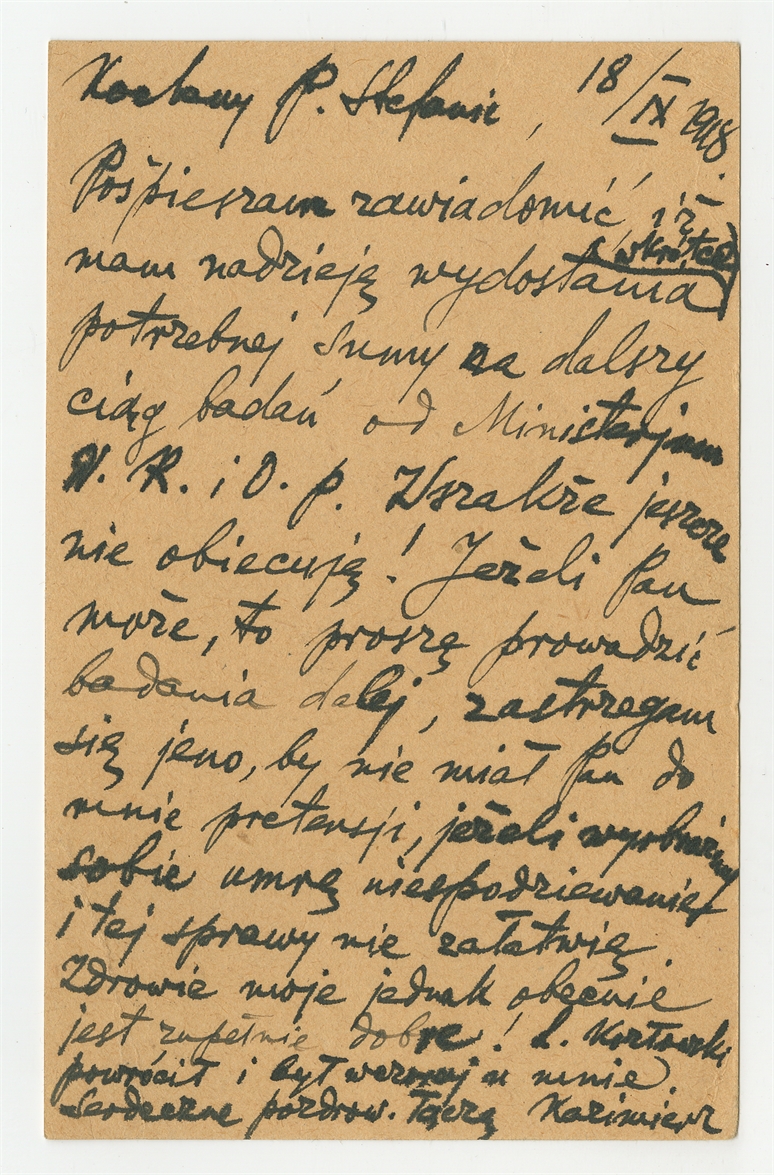 Kochany P. Stefanie, 18/IX 1918.
Pośpieszam zawiadomić, iż
wkrótce
mam nadzieję wydostania
potrzebnej sumy na dalszy
ciąg badań od Ministerjum
W. R. i O. P. Wszakże jeszcze
nie obiecują! Jeżeli Pan
może, to proszę prowadzić
badania dalej, zastrzegam
się jeno, by nie miał Pan do
mnie pretensji, jeżeli wyobraźmy
sobie umrę niespodziewanie
i tej sprawy nie załatwię.
Zdrowie moje jednak obecnie
jest zupełnie dobre! L. Kozłowski
powrócił i był wczoraj u mnie.
Serdeczne pozdrow. łączą Kazimierz